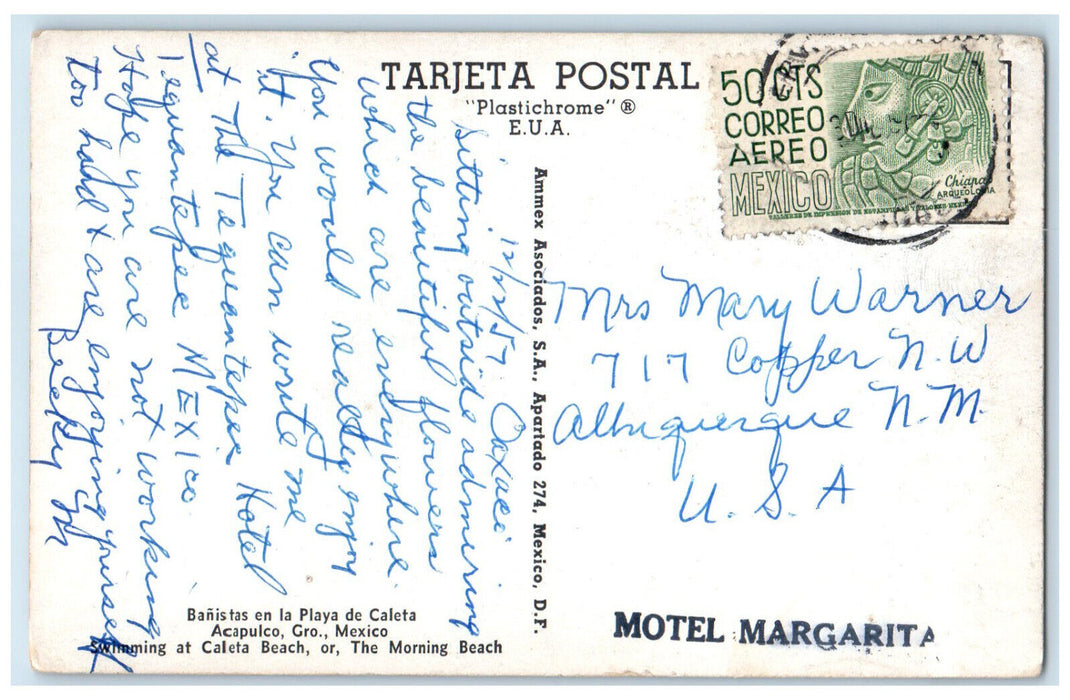 TARJETA POSTAL
"Plastichrome" ®
E.U.A.
50 CTS
CORREO
AEREO
MEXICO
Chiapas
ARQUEOLOGIA
TALLERES DE IMPRESION DE ESTAMPILLAS Y VALORES-MEXICO
12/22/57 Oaxaca
Sitting outside admiring
the beautiful flowers
which are everywhere.
You would really enjoy
it. You can write me
at The Tequantepec Hotel
Tequantepec MEXICO
Hope you are not working
too hard & are enjoying yourself
Becky
Ammex Asociados, S.A., Apartado 274, Mexico, D.F.
Mrs Mary Warner
717 Copper N.W
Albuquerque N.M.
U.S.A
Bañistas en la Playa de Caleta
Acapulco, Gro., Mexico
Swimming at Caleta Beach, or, The Morning Beach
MOTEL MARGARITA